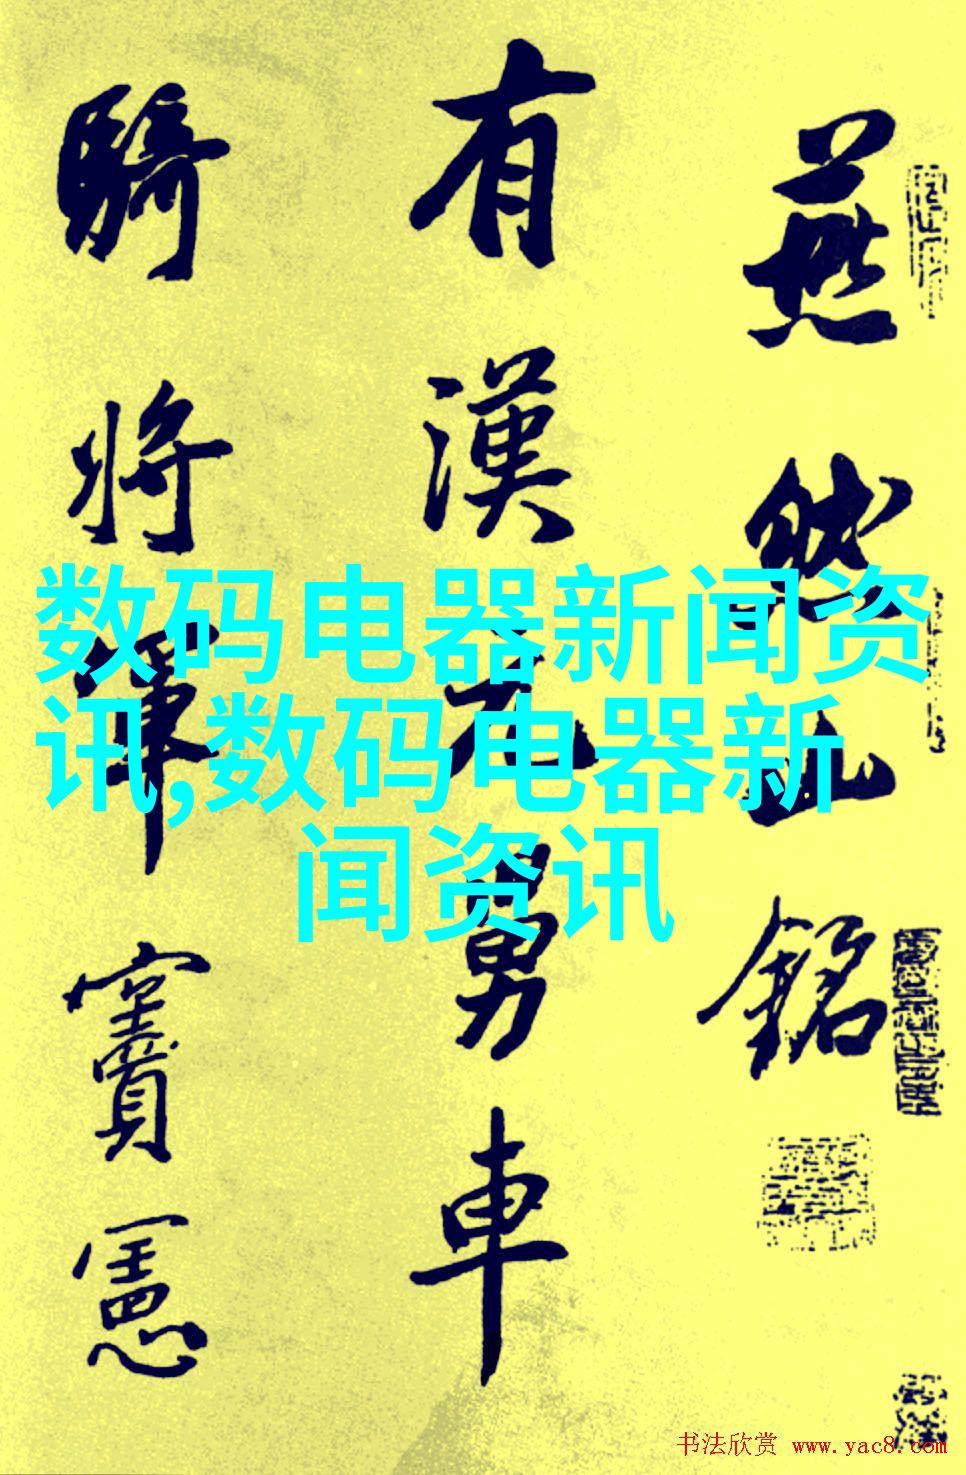 燕然山銘
有漢元舅車
騎將軍竇憲
数码电器新闻资
讯,数码电器新
闻资讯
书法欣赏 www.yac8.com